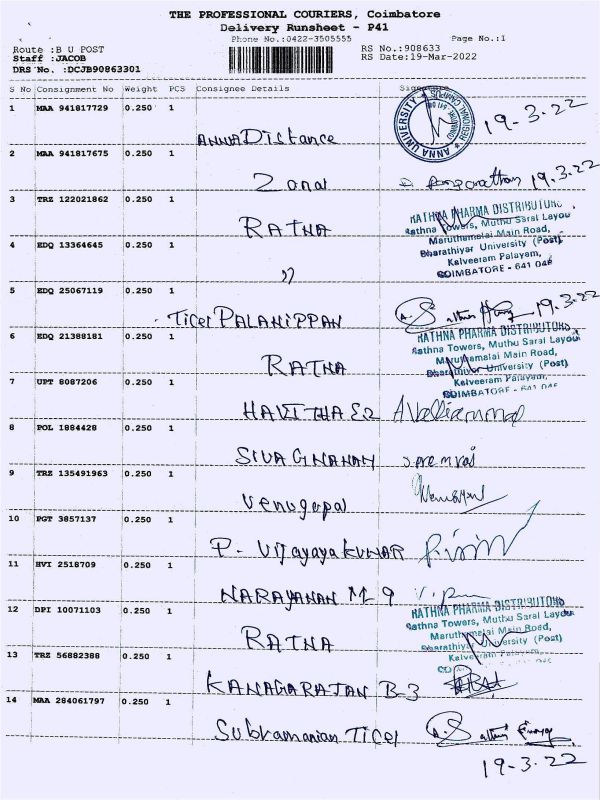 THE PROFESSIONAL COURIERS, Coimbatore
Delivery Runsheet - P41
Phone No.:0422-3505555 Page No.:1
Route :B U POST RS No.:908633
Staff :JACOB RS Date:19-Mar-2022
DRS No. :DCJB90863301
S No Consignment No Weight PCS Consignee Details
1 MAA 941817729 0.250 1 ANNA DIstance 19-3-22
ANNA UNIVERSITY
2 MAA 941817675 0.250 1 Zonal 19.3.22
3 TRZ 122021862 0.250 1 RATNA
RATHNA PHARMA DISTRIBUTORS
Rathna Towers, Muthu Sarai Layou
Maruthamalai Main Road,
Bharathiyar University (Post),
Kalveeram Palayam,
COIMBATORE - 641 046
4 EDQ 13364645 0.250 1 "
5 EDQ 25067119 0.250 1 Ticel PALANIPPAN 19-3-22
6 EDQ 21388181 0.250 1 RATNA
RATHNA PHARMA DISTRIBUTORS
Rathna Towers, Muthu Sarai Layout
Maruthamalai Main Road,
Bharathiyar University (Post)
Kalveeram Palayam,
COIMBATORE - 641 046
7 UPT 8087206 0.250 1
8 POL 1884428 0.250 1 SIVA GNANAM
9 TRZ 135491963 0.250 1 Venugopal
10 PGT 3857137 0.250 1 P. VIJAYAYAKUMAR
11 HVI 2518709 0.250 1 NARAYANAN M 9
12 DPI 10071103 0.250 1 RATNA
RATHNA PHARMA DISTRIBUTORS
Rathna Towers, Muthu Sarai Layou
Maruthamalai Main Road,
Bharathiyar University (Post)
Kalveeram Palayam,
13 TRZ 56882388 0.250 1 KANAGARAJAN B-3
14 MAA 284061797 0.250 1 Subramanian Ticel
19-3-22